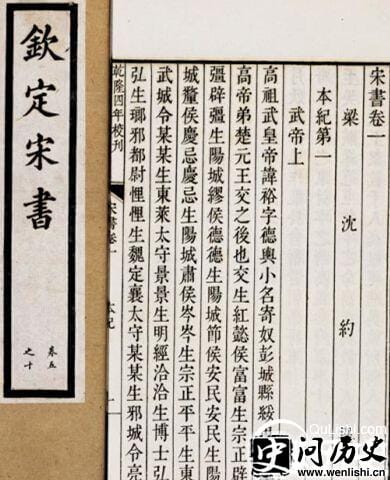 欽定宋書
卷五
之十
宋書卷一
梁 沈 約
本紀第一
武帝上
高祖武皇帝諱裕字德輿小名寄奴彭城縣綏
高帝弟楚元王交之後也交生紅懿侯富富生宗正辟
彊辟彊生陽城繆侯德德生陽城節侯安民安民生陽
城釐侯慶忌慶忌生陽城肅侯岑岑生宗正平平生東
武城令某某生東萊太守景景生明經洽洽生博士弘
弘生瑯邪都尉悝悝生魏定襄太守某某生邪城令亮
乾隆四年校刊
宋書卷一
本紀
一
QuLishi.com
问历史
www.wenlishi.cn